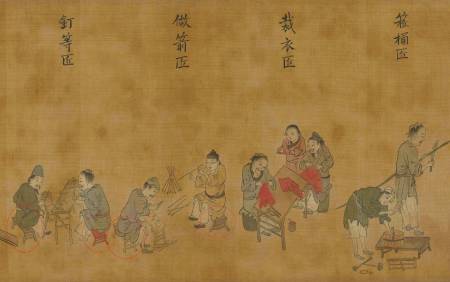 箍桶匠
裁衣匠
做箭匠
釘等匠